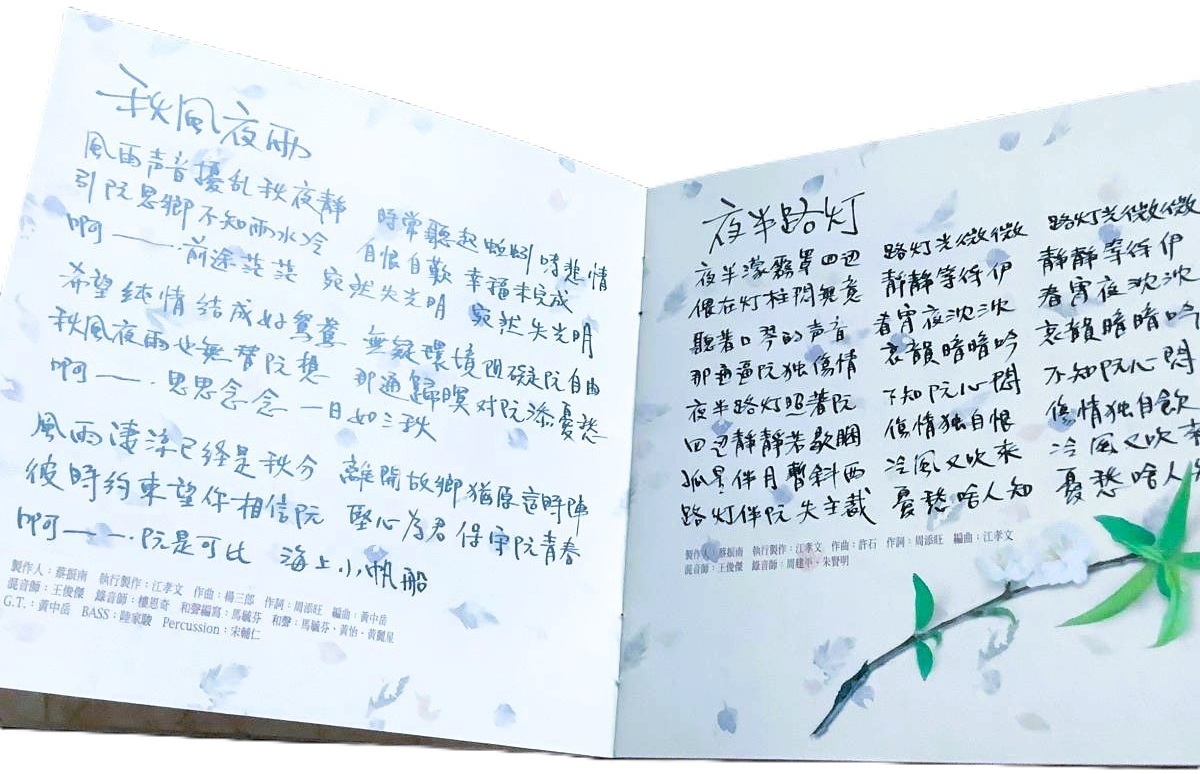 秋風夜雨
風雨声音擾乱秋夜靜 時常聽起蛩蜊哮悲情
引阮思鄉不知雨水冷 自恨自歎 幸福未完成
啊——.前途茫茫 宛然失光明 宛然失光明
希望純情結成好鴛鴦 無疑環境阻礙阮自由
秋風夜雨也無替阮想 那通歸暝对阮添憂愁
啊——.思思念念 一日如三秋
風雨淒涼已経是秋分 離開故鄉猶原這時陣
彼時約束望你相信阮 堅心為君保守阮青春
啊——.阮是可比 海上小帆船
製作人：蔡振南 執行製作：江孝文 作曲：楊三郎 作詞：周添旺 編曲：黃中岳
混音師：王俊傑 錄音師：樓思奇 和聲編寫：馬毓芬 和聲：馬毓芬・黃怡・黃麗星
G.T.：黃中岳 BASS：陸家駿 Percussion：宋輔仁
夜半路灯
夜半濛霧罩四边 路灯光微微 路灯光微微
偎在灯柱悶無意 靜靜等待伊 靜靜等待伊
聽着口琴的声音 春宵夜沈沈 春宵夜沈沈
那通逼阮独傷情 哀韻暗暗吟 哀韻暗暗吟
夜半路灯照着阮 不知阮心悶 不知阮心悶
四边靜靜若歇睏 傷情独自恨 傷情独自飲
孤星伴月暫斜西 冷風又吹來 冷風又吹來
路灯伴阮失主裁 憂愁啥人知 憂愁啥人
製作人：蔡振南 執行製作：江孝文 作曲：許石 作詞：周添旺 編曲：江孝文
混音師：王俊傑 錄音師：周建平・朱賢明